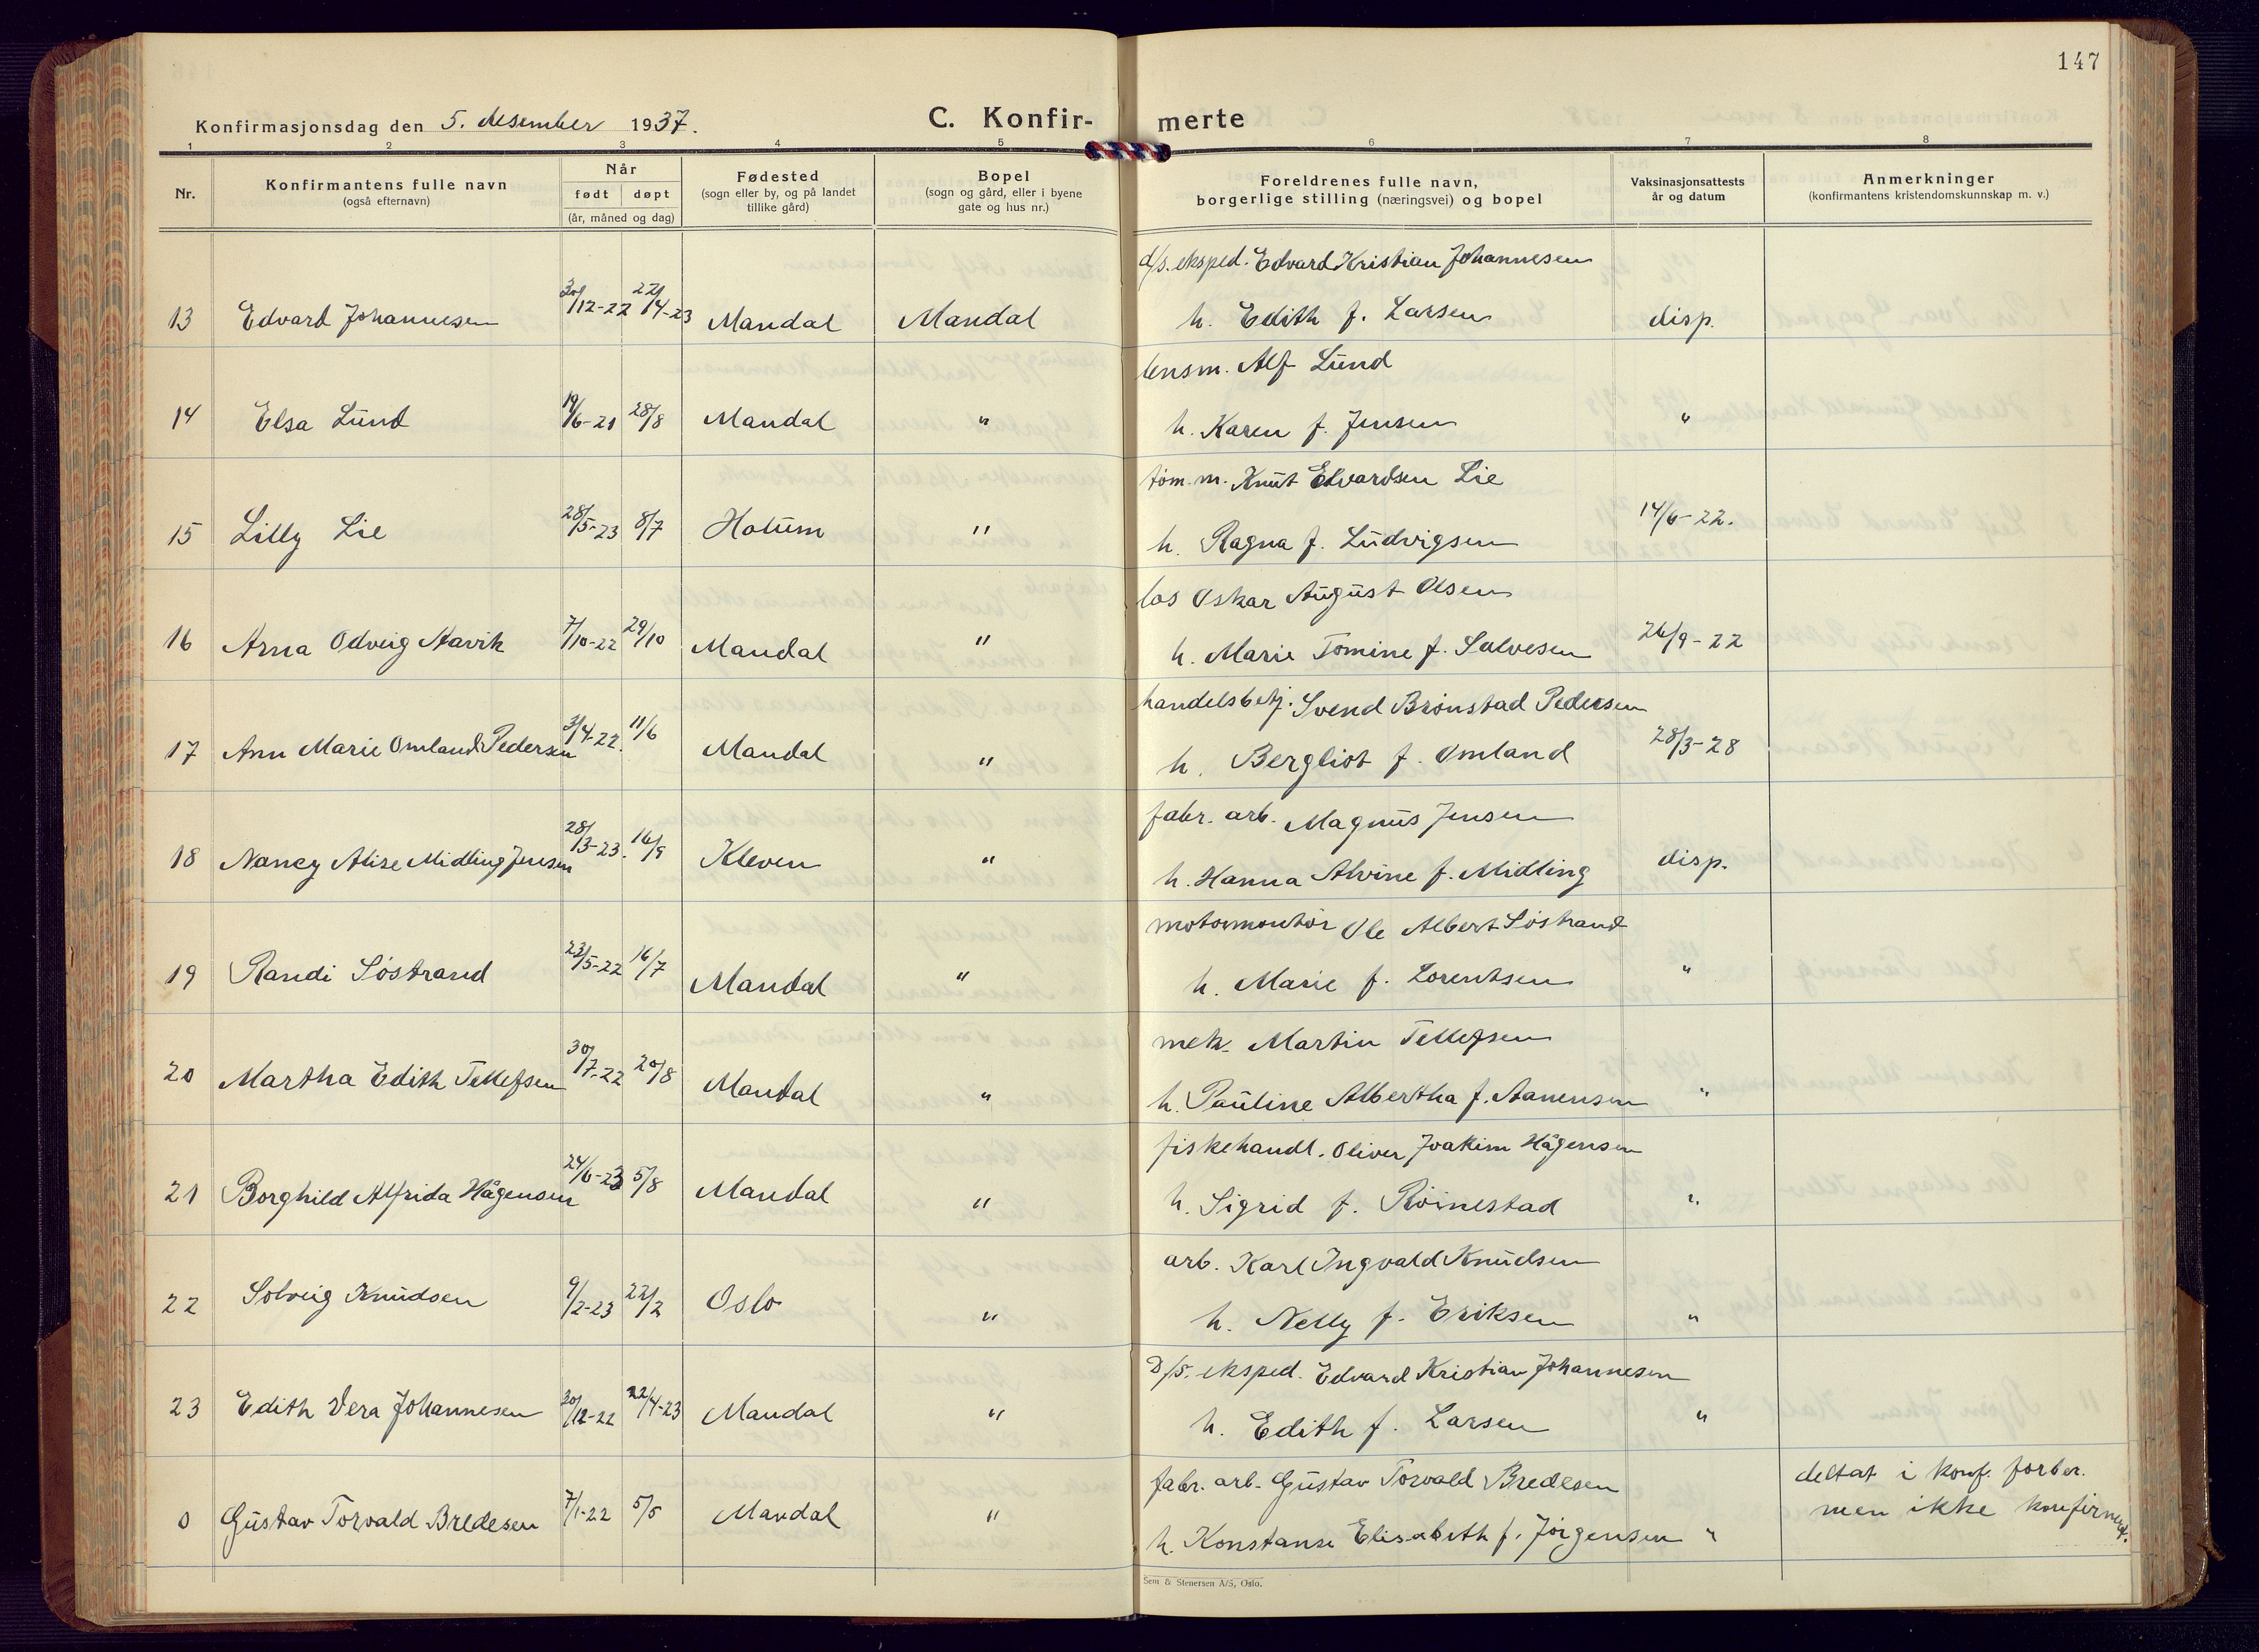 147
Konfirmasjonsdag den 5. desember 1937.
C. Konfir-
merte
1 2 3 4 5 6 7 8
Nr.
Konfirmantens fulle navn
(også efternavn)
Når
født døpt
(år, måned og dag)
Fødested
(sogn eller by, og på landet
tillike gård)
Bopel
(sogn og gård, eller i byene
gate og hus nr.)
Foreldrenes fulle navn,
borgerlige stilling (næringsvei) og bopel
Vaksinasjonsattests
år og datum
Anmerkninger
(konfirmantens kristendomskunnskap m. v.)
d/s. eksped. Edvard Kristian Johannesen
13 Edvard Johannesen 30/12-22 22/4-23 Mandal Mandal h. Edith f. Larsen disp.
lensm. Alf Lund
14 Elsa Lund 19/6-21 28/8 Mandal " h. Karen f. Jensen "
töm. m. Knut Edvardsen Lie
15 Lilly Lie 28/5-23 8/7 Holum " h. Ragna f. Ludvigsen 14/6-22.
los Oskar August Olsen
16 Arna Odveig Aavik 7/10-22 29/10 Mandal " h. Marie Tomine f. Salvesen 26/9-22
handelsbetj. Svend Brönstad Pedersen
17 Ann Marie Omland Pedersen 3/4-22. 11/6 Mandal " h. Bergliot f. Omland 28/3-28
fabr. arb. Magnus Jensen
18 Nancy Alise Midling Jensen 28/3-23. 16/9 Kleven " h. Hanna Alvine f. Midling disp.
motormontör Ole Albert Söstrand
19 Randi Söstrand 23/5-22 16/7 Mandal " h. Marie f. Lorentsen "
mek. Martin Tellefsen
20 Martha Edith Tellefsen 30/7-22 20/8 Mandal " h. Pauline Albertha f. Aanensen "
fiskehandl. Oliver Joakim Hågensen
21 Borghild Alfrida Hågensen 24/6-23 5/8 Mandal " h. Sigrid f. Röinestad "
arb. Karl Ingvald Knudsen
22 Solveig Knudsen 9/2-23 22/2 Oslo " h. Nelly f. Eriksen "
D/S. eksped. Edvard Kristian Johannesen
23 Edith Vera Johannesen 30/12-22 22/4-23 Mandal " h. Edith f. Larsen "
fabr. arb. Gustav Torvald Bredesen deltat i konf. forber.
0 Gustav Torvald Bredesen 7/1-22 5/5 Mandal " h. Konstanse Elisabeth f. Jörgensen " men ikke konfirmert.
Sem & Stenersen A/S, Oslo.